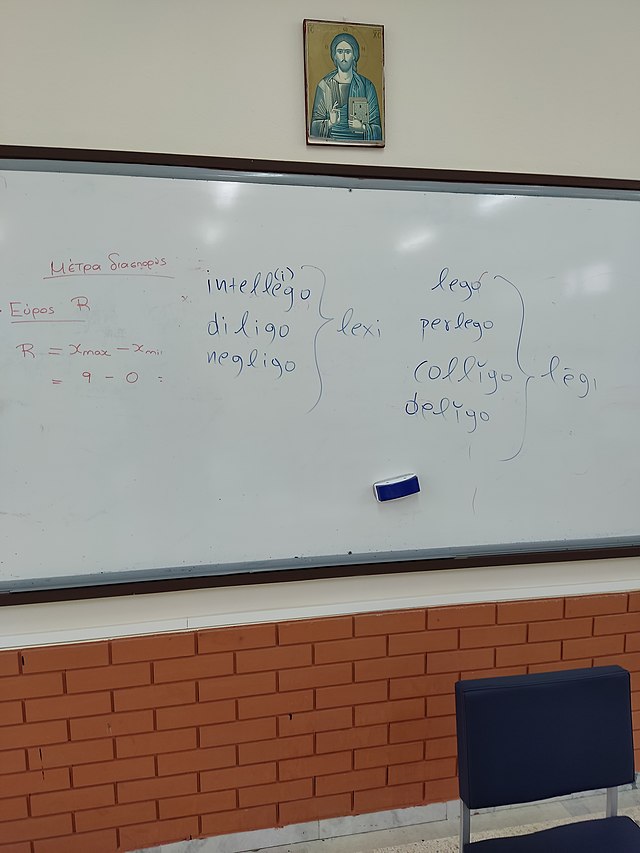 Μέτρα διασποράς
Εύρος R
R = xmax - xmin
= 9 - 0 =
intellĕgo (i)
diligo
negligo
lexi
lego
perlego
collĭgo
delĭgo
lēgi